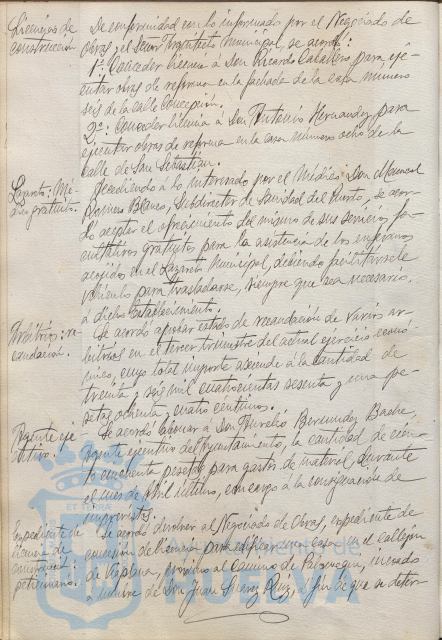 Licencias de
construcción.
De conformidad con lo informado por el Negociado de
Obras y el Señor Arquitecto Municipal, se acordó:
1º: Conceder licencia á Don Ricardo Caballero para eje-
cutar obras de reforma en la fachada de la casa número
seis de la calle Concepción.
2º: Conceder licencia á Don Antonio Hernandez para
ejecutar obras de reforma en la casa número ocho de la
calle de San Sebastián.
Lazareto: Mé-
dico gratuito.
Accediendo á lo interesado por el Médico Don Manuel
Blanco, Subdirector de Sanidad del Puerto, se acor-
dó aceptar el ofrecimiento del mismo de sus servicios fa-
cultativos gratuitos para la asistencia de los enfermos
acogidos en el Lazareto Municipal, debiendo facilitársele
vehículo para trasladarse, siempre que sea necesario,
á dicho establecimiento.
Arbitrios: re-
caudación.
Se acordó aprobar estado de recaudación de varios ar-
bitrios en el tercer trimestre del actual ejercicio econó-
mico, cuyo total importe asciende á la cantidad de
treinta y seis mil cuatrocientas sesenta y una pe-
setas ochenta y cuatro céntimos.
Agente eje-
cutivo.
Se acordó abonar á Don Aurelio Bermudez Bache,
agente ejecutivo del Ayuntamiento, la cantidad de cien-
to cincuenta pesetas para gastos de material durante
el mes de Abril último, con cargo á la consignación de
imprevistos.
Expediente de
licencia de
construcción
Se acordó devolver al Negociado de Obras, expediente de
concesión de licencia para edificar una casa en el callejón
de próximo al camino de incoado
á nombre de Don Juan Suarez Ruiz, á fin de que se deter-
ET TERRA
Ayuntamiento de
HUELVA